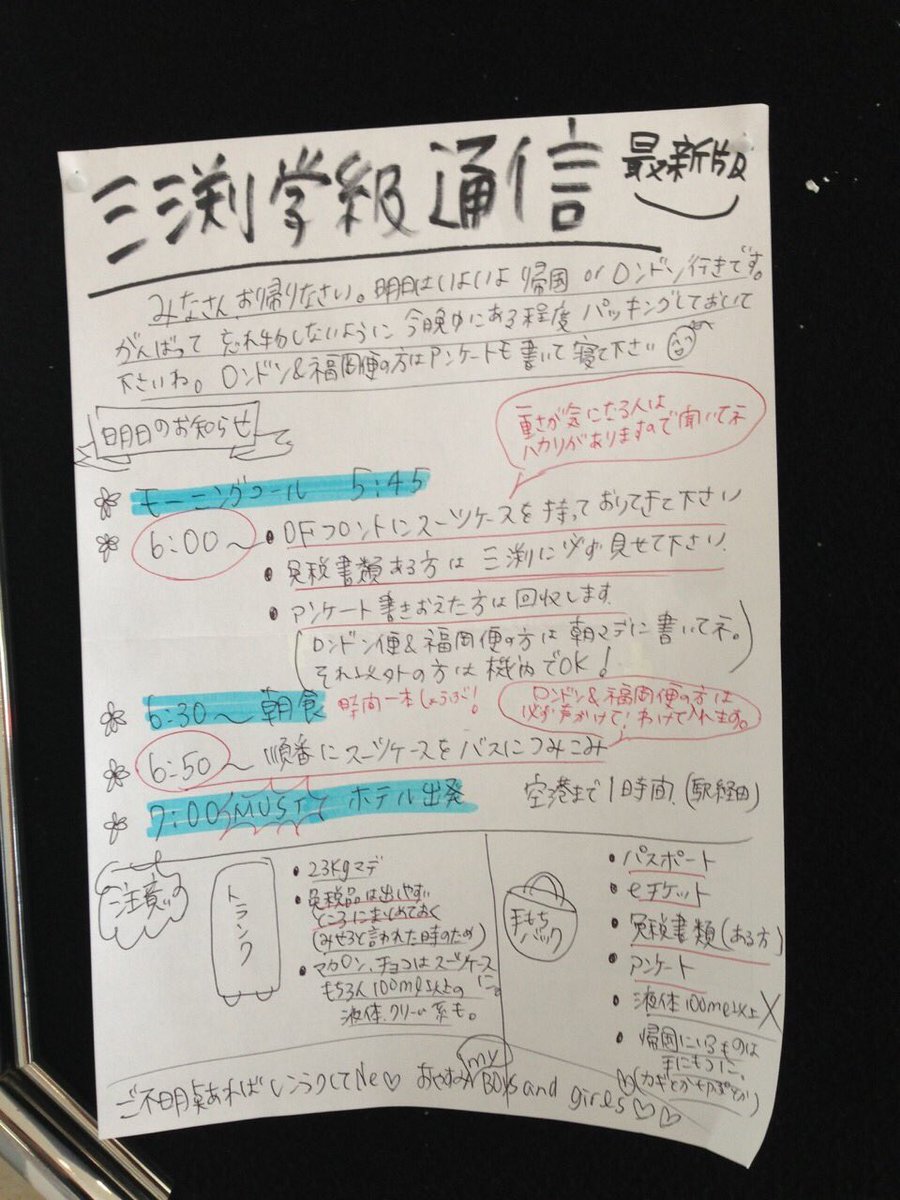 三渕学級通信 最新版
みなさんお帰りなさい。明日はいよいよ帰国 or ロンドン行きです。
がんばって 忘れ物しないように 今晩中にある程度 パッキングしておいて
下さいね。ロンドン&福岡便の方はアンケートも書いて寝て下さい
明日のお知らせ
重さが気になる人は
ハカリがありますので聞いて下
モーニングコール 5:45
6:00〜 • 0Fフロントにスーツケースを持っておりてきて下さい
• 免税書類ある方は三渕に必ず見せて下さい
• アンケート書きおえた方は回収します
(ロンドン便&福岡便の方は朝マデに書いて下。
それ以外の方は機内でOK!)
6:30〜 朝食 時間一本しょうぶ!
ロンドン&福岡便の方は
必ず声かけて!わけて入れます。
6:50〜 順番にスーツケースをバスにつみこみ
7:00 MUST ホテル出発 空港まで1時間(駅経由)
ご注意
トランク
• 23Kgマデ
• 免税品は出しやすい
ところにまとめておく
(みせろと言われた時のため)
• マカロン、チョコはスーツケースに。
もちろん100ml以上の
液体、クリーム系も。
手もちバック
• パスポート
• eチケット
• 免税書類(ある方)
• アンケート
• 液体100ml以上X
• 帰国にいるものは
手にもつに、
(カギとかキップとか)
ご不明点あればレンラクしてNe♡ おやすみ my BOYS and girls♡♡